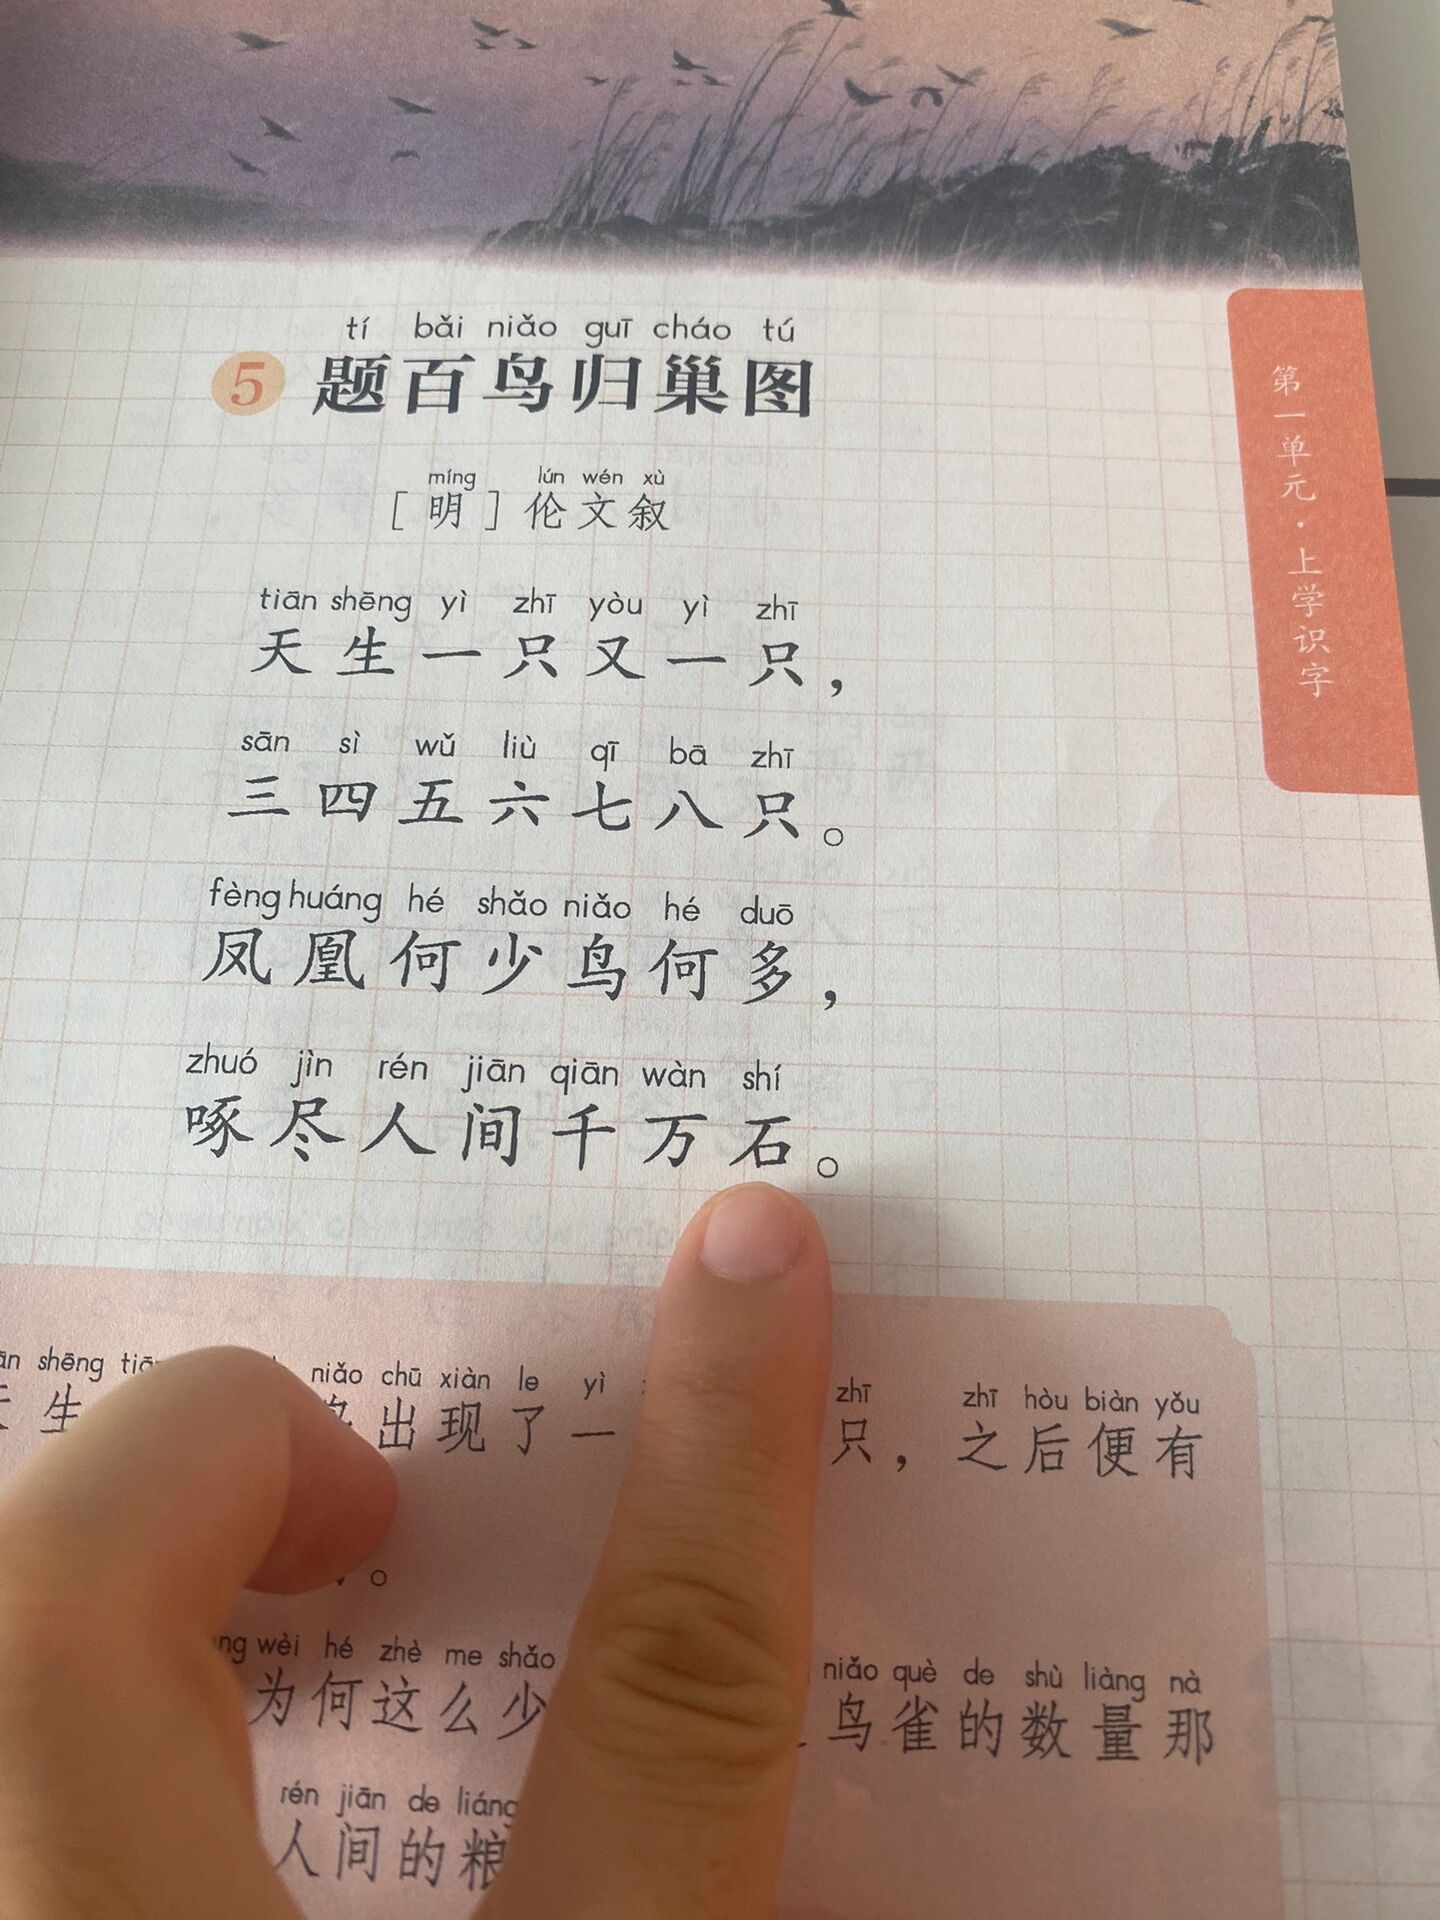 tí bǎi niǎo guī cháo tú
5 题百鸟归巢图
míng lún wén xù
[明] 伦文叙
tiān shēng yì zhī yòu yì zhī
天生一只又一只，
sān sì wǔ liù qī bā zhī
三四五六七八只。
fèng huáng hé shǎo niǎo hé duō
凤凰何少鸟何多，
zhuó jìn rén jiān qiān wàn shí
啄尽人间千万石。
第一单元·上学识字
shēng niǎo chū xiàn le yì zhī zhī hòu biàn yǒu
生 出现了一 只，之后便有
。
wèi hé zhè me shǎo niǎo què de shù liàng nà
为何这么少 鸟雀的数量那
rén jiān de liáng
人间的粮